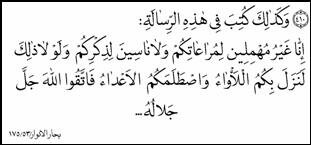 ﴿٤١٠﴾ وَكَذَلِكَ كُتِبَ فِي هَذِهِ الرِّسَالَةِ:
إِنَّا غَيْرُ مُهْمِلِينَ لِمُرَاعَاتِكُمْ وَلَانَاسِينَ لِذِكْرِكُمْ وَلَوْلَاذَلِكَ
لَنَزَلَ بِكُمُ اللَّأْوَاءُ وَاصْطَلَمَكُمُ الْأَعْدَاءُ فَاتَّقُوا اللَّهَ جَلَّ
جَلَالُهُ...
بحارالانوار/٥٣/١٧٥